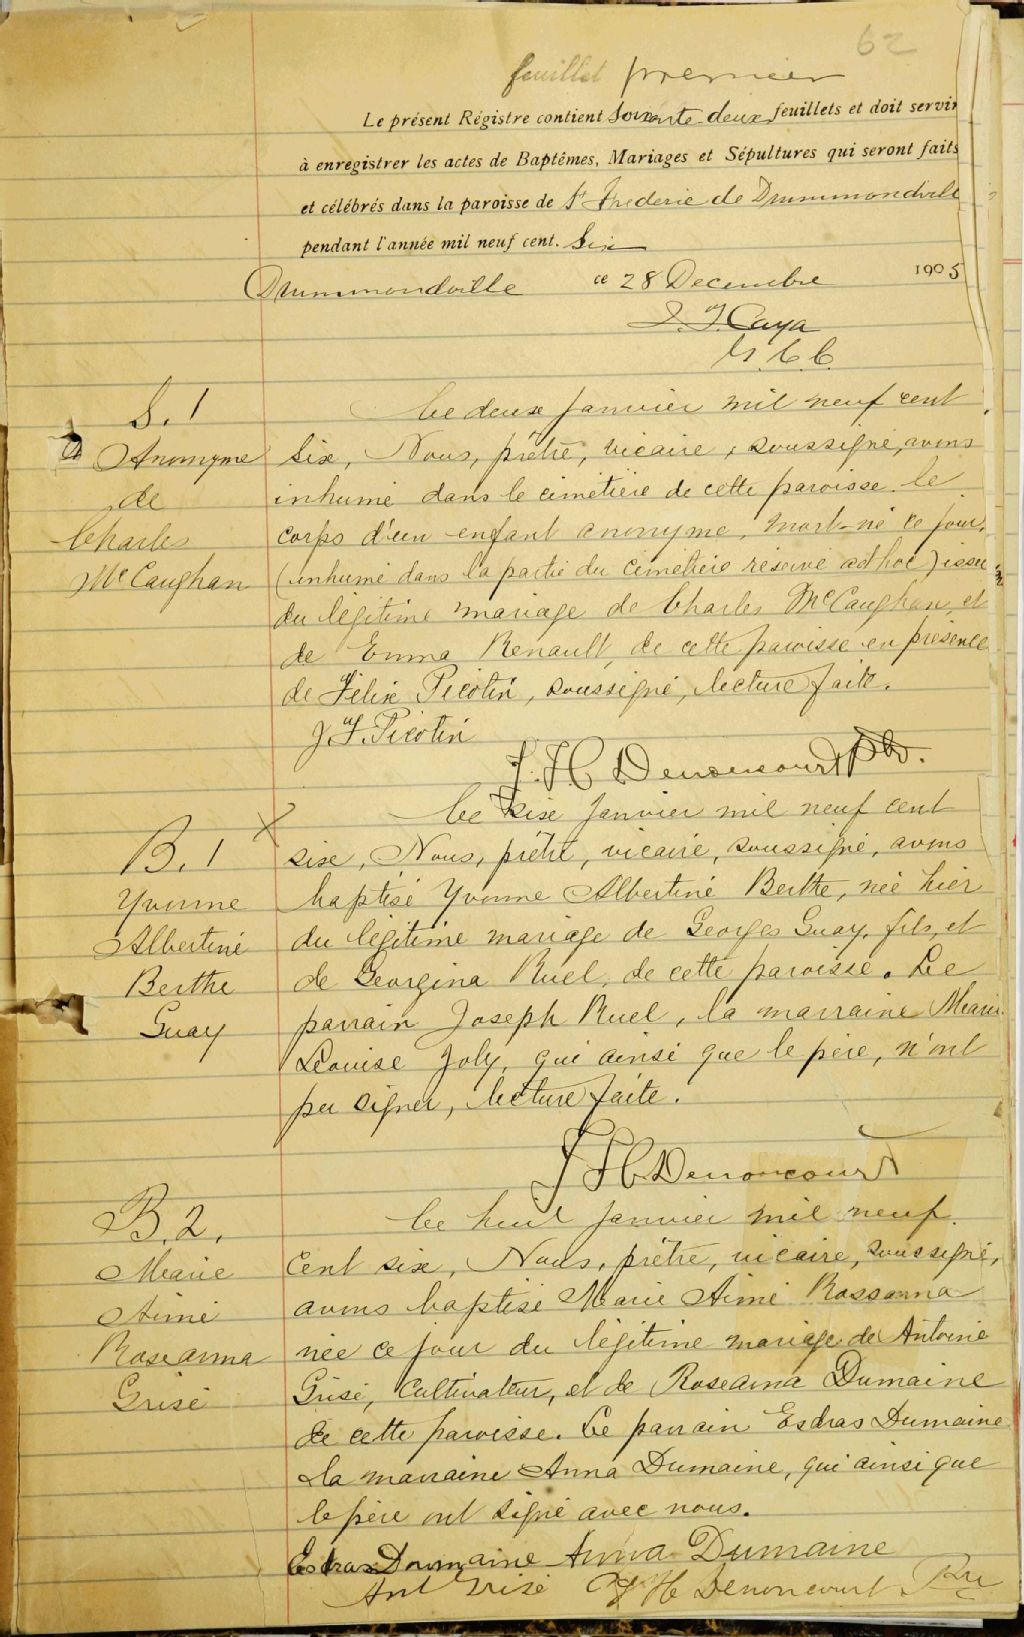 62
feuillet premier
Le présent Régistre contient soixante-deux feuillets et doit servir
à enregistrer les actes de Baptêmes, Mariages et Sépultures qui seront faits
et célébrés dans la paroisse de St Frederic de Drummondville
pendant l'année mil neuf cent. Six
Drummondville ce 28 Decembre 1905
J. J. Caya
S. 1
Anonyme
de
Charles
McCaughan
Le deux janvier mil neuf cent
six, Nous, prêtre, vicaire, soussigné, avons
inhumé dans le cimetière de cette paroisse le
corps d'un enfant anonyme, mort-né ce jour,
(inhumé dans la partie du cimetière réservé ad hoc) issu
du légitime mariage de Charles McCaughan, et
de Emma Renault, de cette paroisse en présence
de Félix Picotin, soussigné, lecture faite.
J. F. Picotin
J. H. Denoncourt Ptr.
B. 1
Yvonne
Albertine
Berthe
Guay
Le six janvier mil neuf cent
six, Nous, prêtre, vicaire, soussigné, avons
baptisé Yvonne Albertine Berthe, née hier
du légitime mariage de Georges Guay, fils, et
de Georgina Ruel, de cette paroisse. Le
parrain Joseph Ruel, la marraine Marie
Louise Joly, qui ainsi que le père, n'ont
pu signer, lecture faite.
J H Denoncourt
B. 2.
Marie
Aimé
Roseanna
Grisé
Le huit janvier mil neuf
cent six, Nous, prêtre, vicaire, soussigné,
avons baptisé Marie Aimé Rossanna
née ce jour du légitime mariage de Antoine
Grisé, cultivateur, et de Roseanna Dumaine
de cette paroisse. Le parrain Esdras Dumaine
la marraine Anna Dumaine, qui ainsi que
le père ont signé avec nous.
Esdras Dumaine Anna Dumaine
Ant Grisé J H Denoncourt Ptre